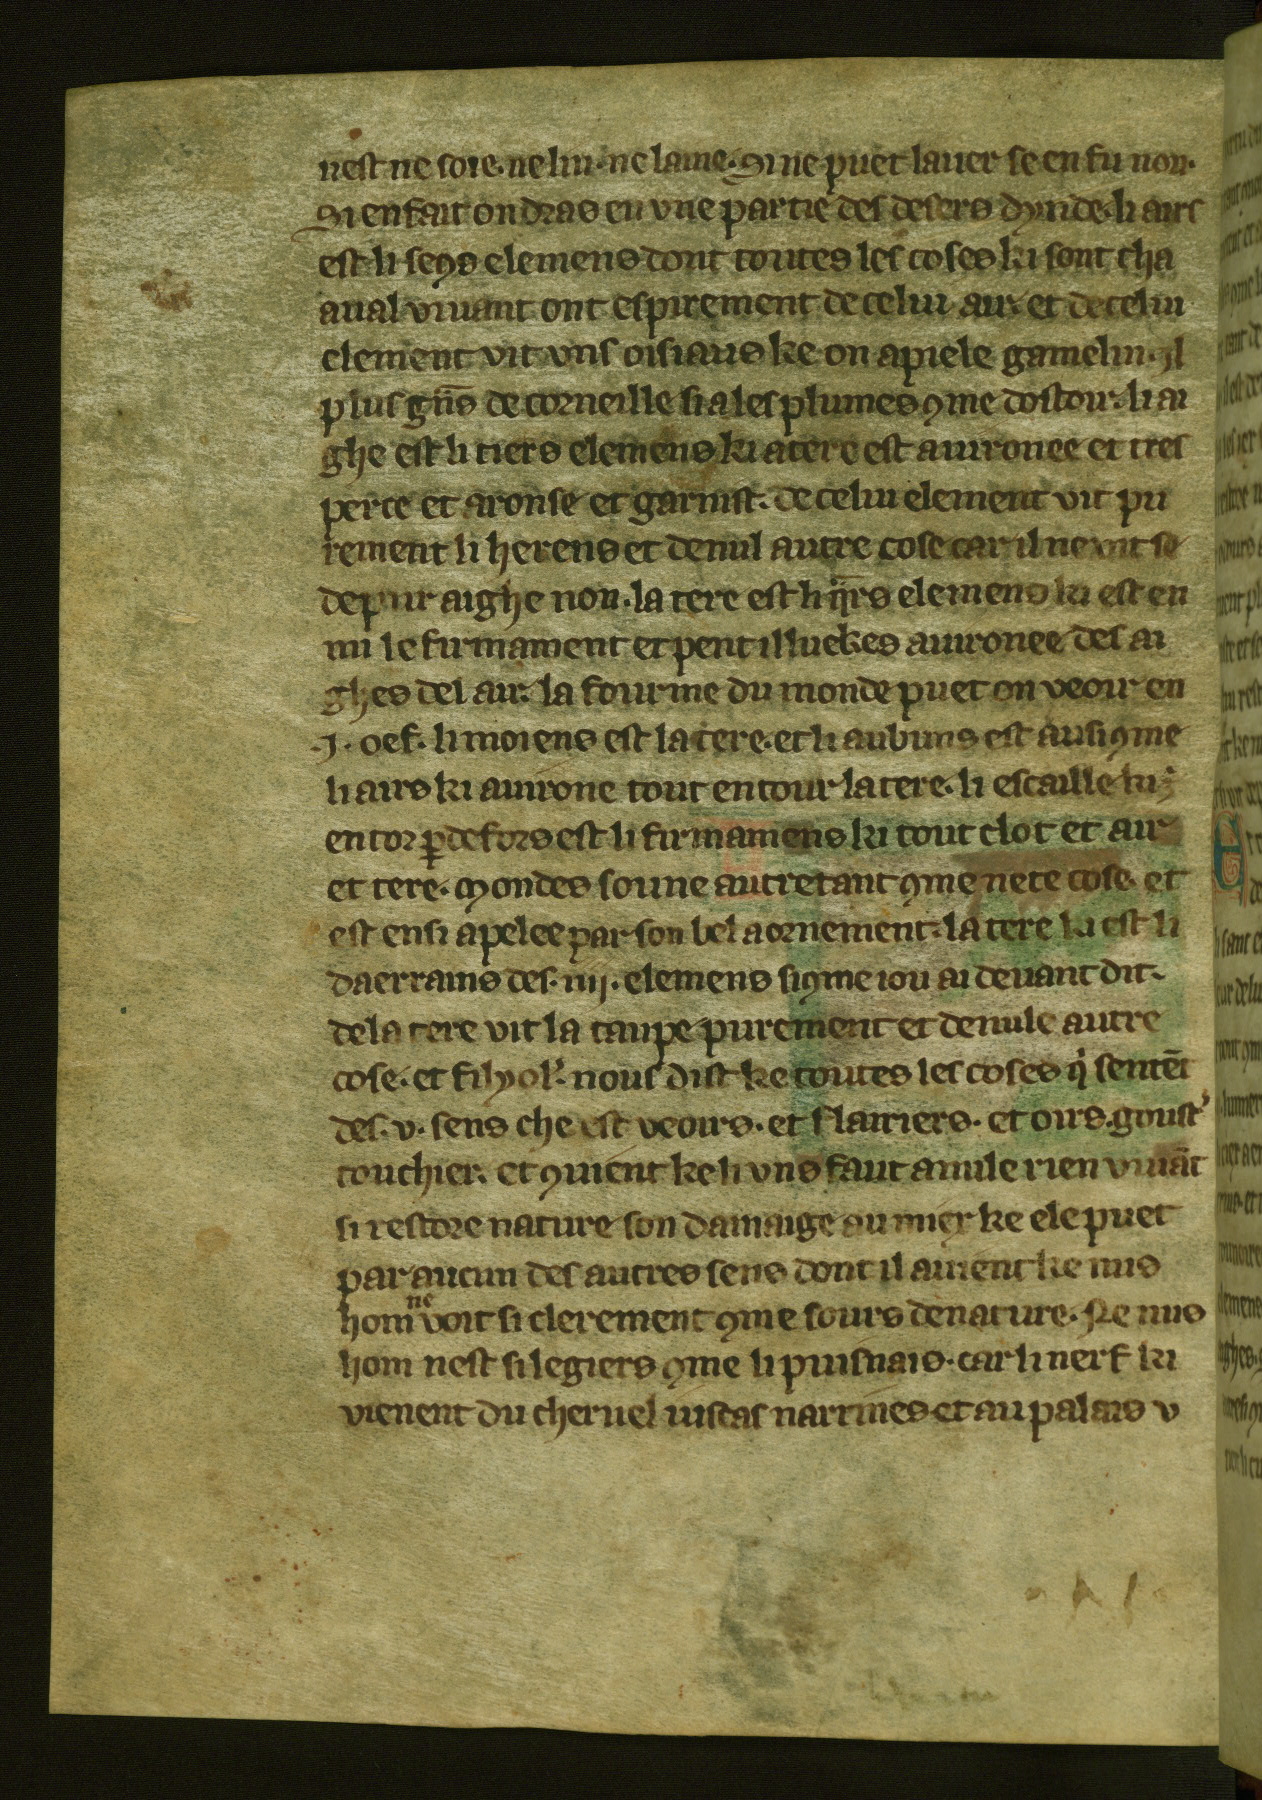 nest ne soie. ne lin. ne laine. Si ne puet lauer se en fu non.
Si en fait on dras en vne partie des desers dynde. li airs
est li seꝯs elemens dont toutes les coses ki sont cha
aual viuant ont espirement de celui air. et de celui
element vit vns oisiaus ke on apiele gamelin. Il
plus gñs de corneille si a les plumes ꝯme dostoir. li ai
ghe est li tiers elemens ki a tere est auironee et tres
perce et aronse et garnist. de celui element vit pu
rement li herens et de nul autre cose car il ne vit se
de pur aighe non. la tere est li q̄rs elemens ki est en
mi le firmament et pent illuekes auironee des ai
ghes del air. la fourme du monde puet on veoir en
.I. oef. li moiens est la tere. et li aubuns est ausi ꝯme
li airs ki auirone tout entour la tere. li escaille ki ē
entor ꝑ defors est li firmamens ki tout clot et air
et tere. Mondes soune autretant ꝯme nete cose. et
est ensi apelee par son bel aornement. la tere ki est li
daerrains des .iiij. elemens si ꝯme iou ai deuant dit.
de la tere vit la taupe purement et de nule autre
cose. et filyol'. nous dist ke toutes les coses q̓ sentēt
des .v. sens che est veoirs. et flairiers. et oirs. goust'
touchier. et ꝯuient ke li vns faut a nule rien viuāt
si restore nature son damaige au miex ke ele puet
par aucun des autres sens dont il auient ke nus
hom ne voit si clerement ꝯme sours de nature. Ne nus
hom nest si legiers ꝯme li puisnais. car li nerf ki
vienent du cheruel iuscas narrines et au palais v